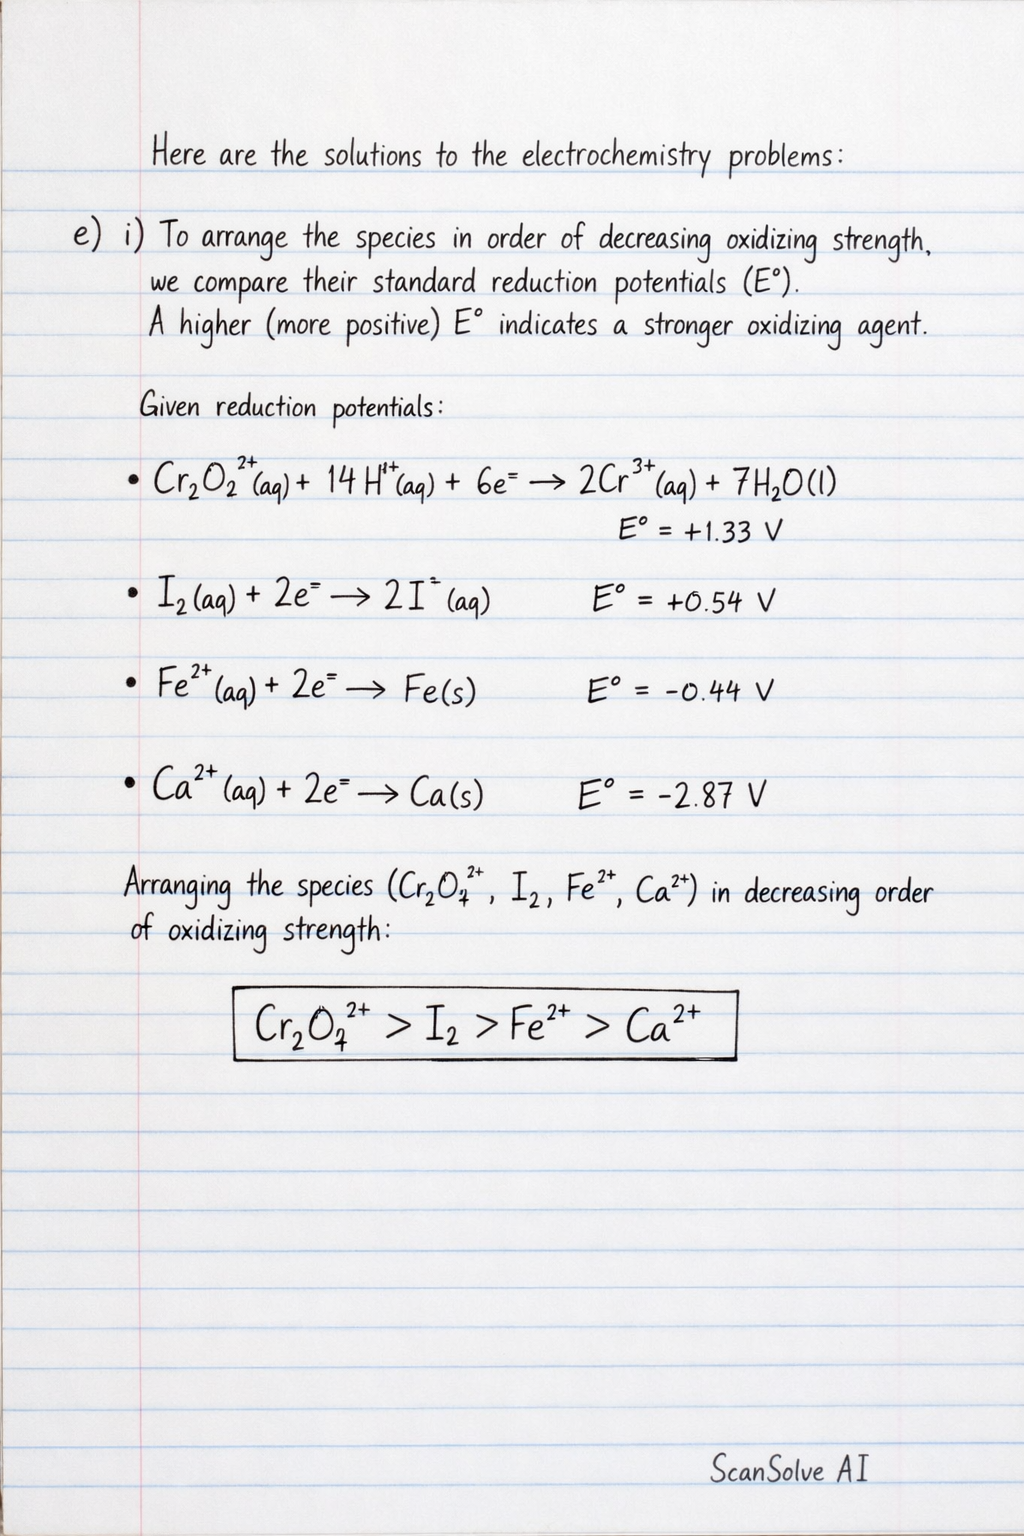 Here are the solutions to the electrochemistry problems:
e) i) To arrange the species in order of decreasing oxidizing strength,
we compare their standard reduction potentials (E°).
A higher (more positive) E° indicates a stronger oxidizing agent.
Given reduction potentials:
• Cr₂O₂²⁺(aq) + 14H⁺(aq) + 6e⁼ → 2Cr³⁺(aq) + 7H₂O(l)
E° = +1.33 V
• I₂(aq) + 2e⁼ → 2I⁻(aq) E° = +0.54 V
• Fe²⁺(aq) + 2e⁼ → Fe(s) E° = -0.44 V
• Ca²⁺(aq) + 2e⁼ → Ca(s) E° = -2.87 V
Arranging the species (Cr₂O₇²⁺, I₂, Fe²⁺, Ca²⁺) in decreasing order
of oxidizing strength:
Cr₂O₇²⁺ > I₂ > Fe²⁺ > Ca²⁺
ScanSolve AI